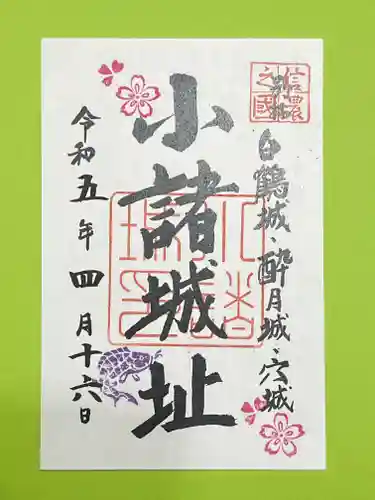 信濃之國
別称
白鶴城、酔月城、穴城
小諸城址
令和五年四月十六日